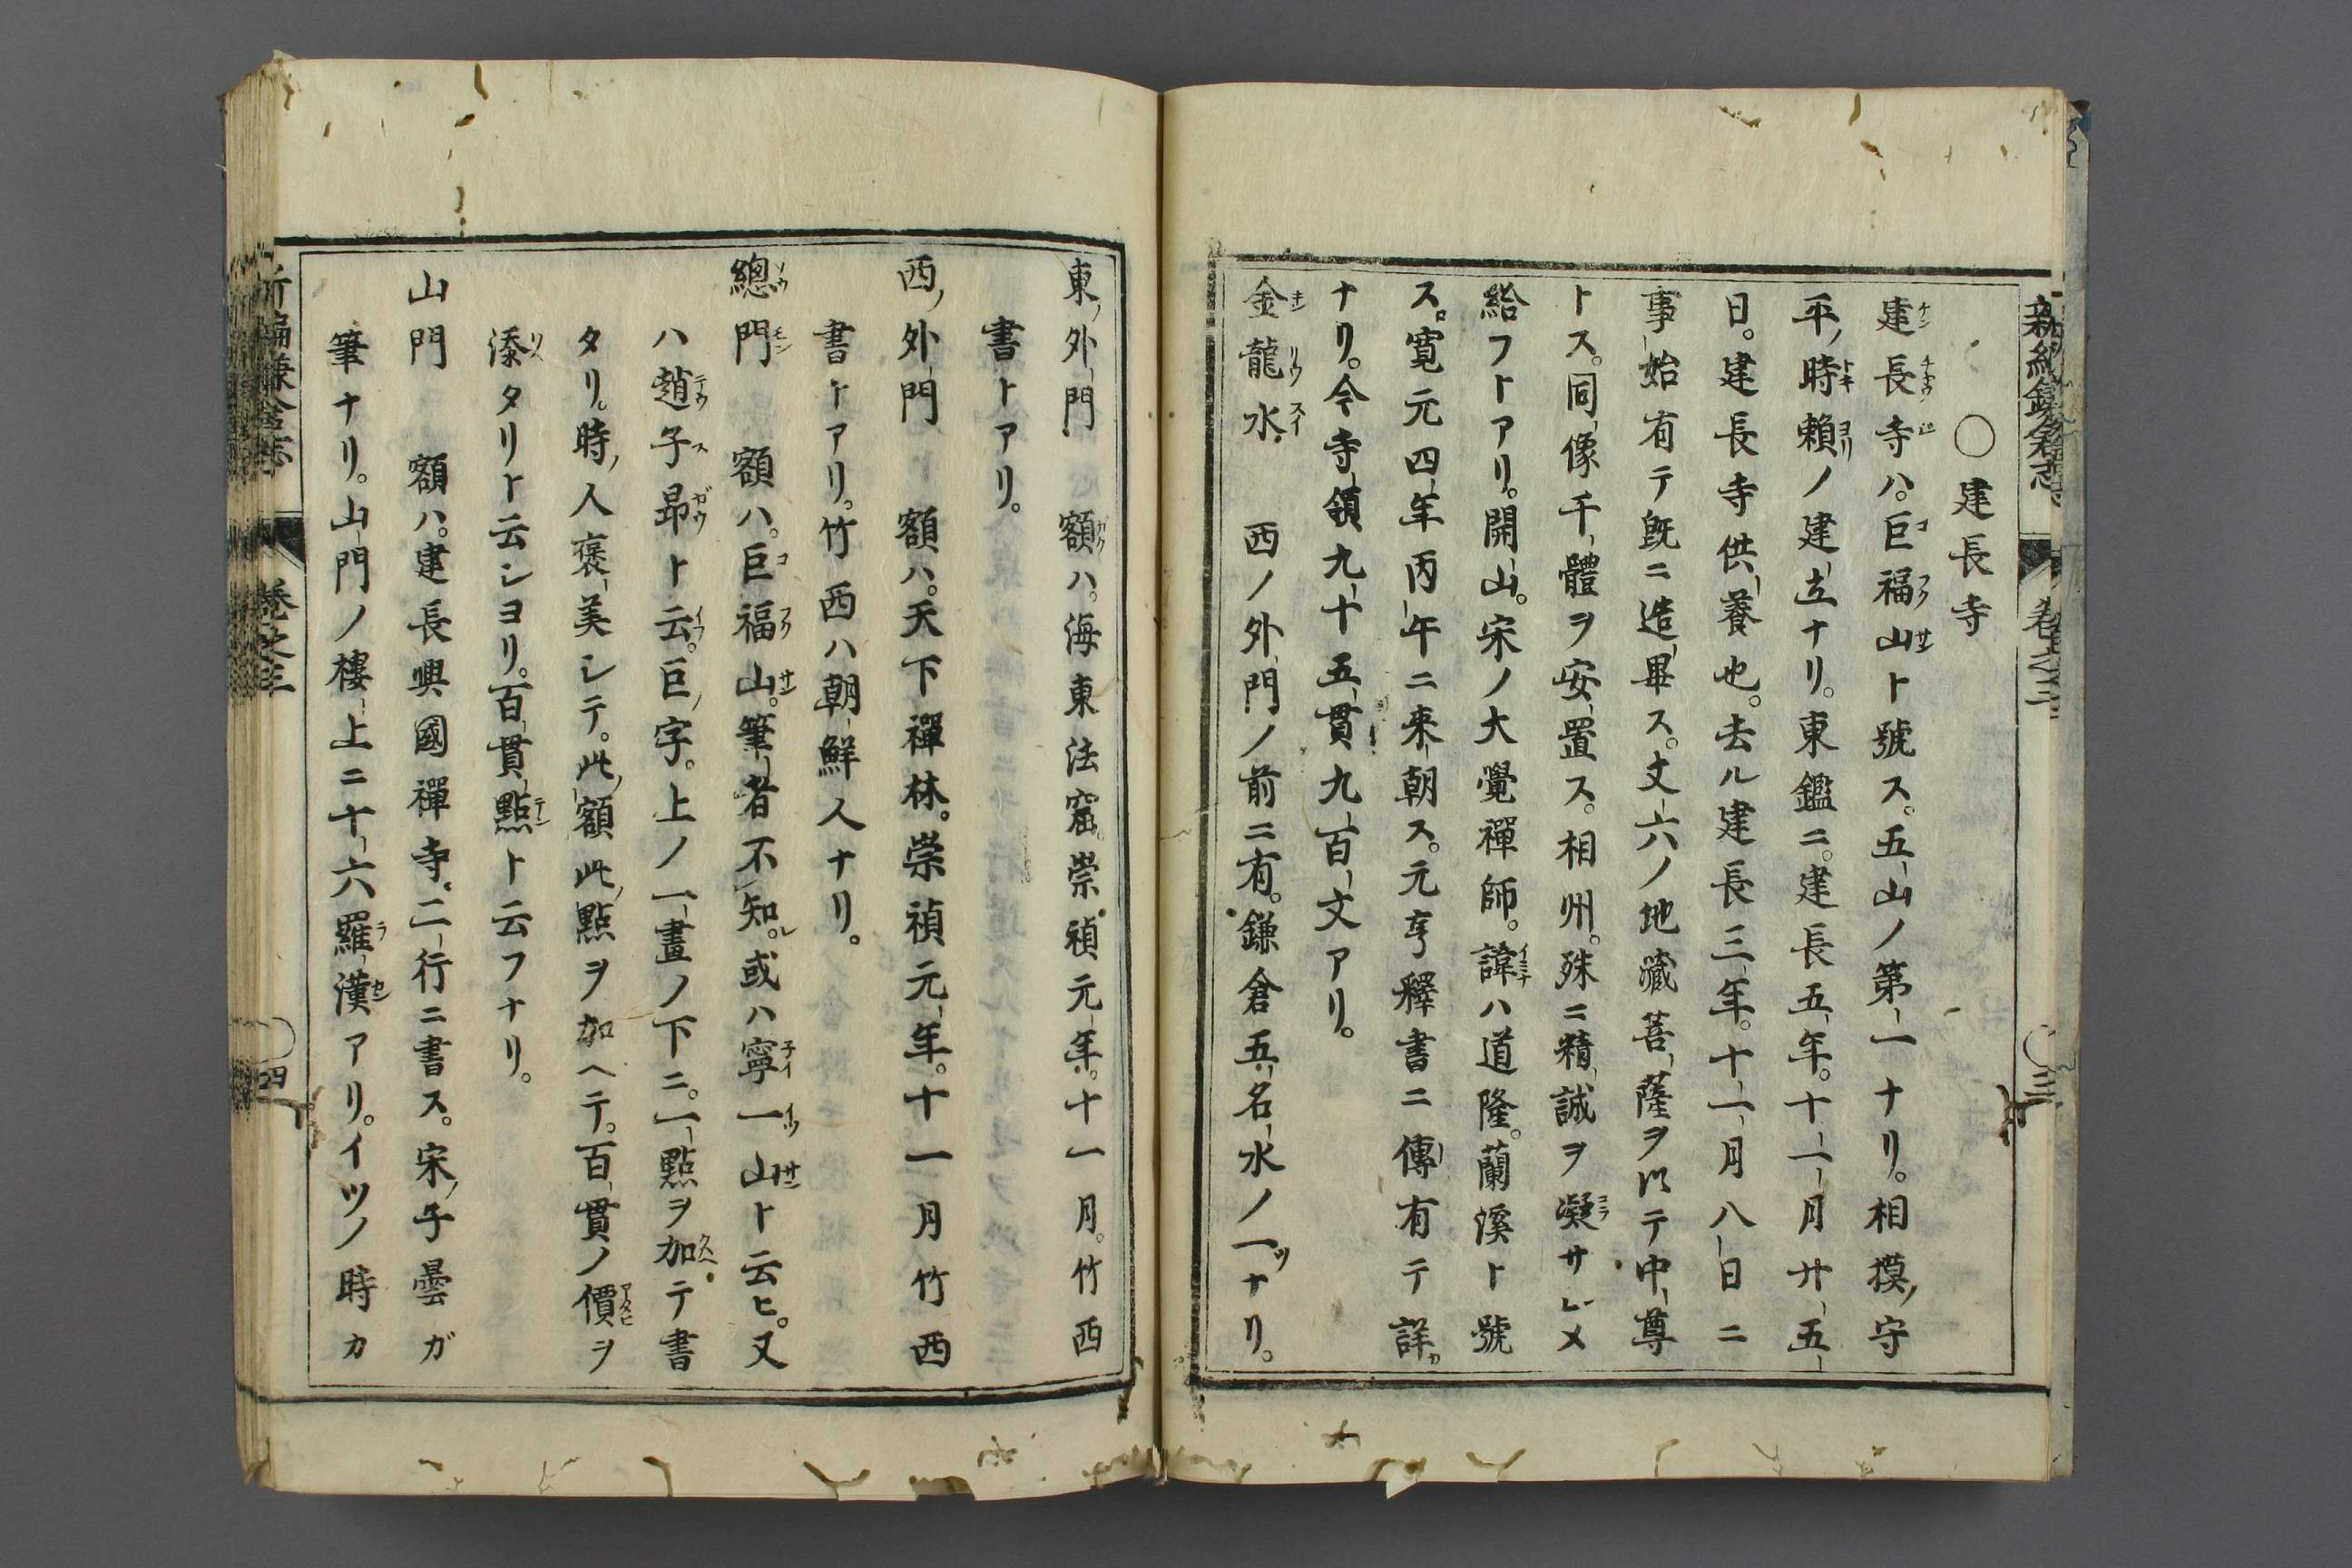 新編鎌倉志
卷之三
○三
○建長寺
建長寺ハ。巨福山ト號ス。五山ノ第一ナリ。相摸守
平時賴ノ建立ナリ。東鑑ニ。建長五年。十一月廿五
日。建長寺供養也。去ル建長三年。十一月八日ニ
事始有テ既ニ造畢ス。丈六ノ地藏菩薩ヲ以テ中尊
トス。同像千體ヲ安置ス。相州。殊ニ精誠ヲ凝サシメ
給フトアリ。開山。宋ノ大覺禪師。諱ハ道隆。蘭溪ト號
ス。寛元四年丙午ニ來朝ス。元亨釋書ニ傳有テ詳
ナリ。今寺領九十五貫九百文アリ。
金龍水 西ノ外門ノ前ニ有。鎌倉五名水ノ一ツナリ。
東外門 額ハ。海東法窟。崇禎元年。十一月。竹西
書トアリ。
西外門 額ハ。天下禪林。崇禎元年。十一月竹西
書トアリ。竹西ハ朝鮮人ナリ。
總門 額ハ。巨福山。筆者不知。或ハ寧一山ト云ヒ。又
ハ趙子昻ト云。巨字。上ノ一畫ノ下ニ。一點ヲ加テ書
タリ。時人褒美シテ。此額此點ヲ加ヘテ。百貫ノ價ヲ
添タリト云シヨリ。百貫點ト云フナリ。
山門 額ハ。建長興國禪寺。二行ニ書ス。宋子曇ガ
筆ナリ。山門ノ樓上ニ十六羅漢アリ。イツノ時カ
新編鎌倉志
卷之三
○四